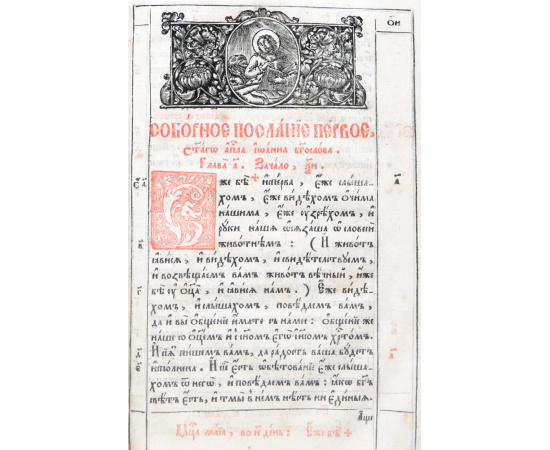 ѻ҃и
СОБО́РНОЕ ПОСЛА́НЇЕ ПЕ́РВОЕ,
Ст҃а́гѡ а҆п҃ла і҆ѡа́нна бг҃осло́ва.
Глава̀ а҃. Зача́ло,
Е҆́же бѣ̀ и҆спе́рва, є҆́же слы́ша-
хомъ, є҆́же ви́дѣхомъ ѻ҆чи́ма
на́шима, є҆́же ᲂу҆зрѣ́хомъ, и҆
рꙋ́ки на́шѧ ѡ҆сѧза́ша ѡ҆ словесѝ
живо́тнѣмъ : ( И҆ живо́тъ
ꙗ҆ви́сѧ, и҆ ви́дѣхомъ, и҆ свидѣ́тельствꙋемъ,
и҆ возвѣща́емъ ва́мъ живо́тъ вѣ́чный, и҆́же
бѣ̀ ᲂу҆ ѻ҆ц҃а̀, и҆ ꙗ҆ви́сѧ на́мъ. ) Е҆́же ви́дѣ-
хомъ, и҆ слы́шахомъ, повѣ́даемъ ва́мъ,
да и҆ вы̀ ѻ҆бще́нїе и҆́мате съ на́ми : ѻ҆бще́нїе же
на́ше со ѻ҆ц҃е́мъ и҆ съ сн҃омъ є҆гѡ̀ і҆и҃сомъ хрⷭ҇то́мъ.
И҆ сїѧ̑ пи́шемъ ва́мъ, да ра́дость ва́ша бꙋ́детъ
и҆спо́лнена. И҆ сїѐ є҆́сть ѡ҆бѣтова́нїе є҆́же слы́ша-
хомъ ѿ негѡ̀, и҆ повѣ́даемъ ва́мъ : ꙗ҆́кѡ бг҃ъ
свѣ́тъ є҆́сть, и҆ тмы̀ въ не́мъ нѣ́сть ни є҆ди́ныѧ.
А҆́ще
Мц҃а ма́їа, во и҃ де́нь : Е҆́же бѣ̀ +